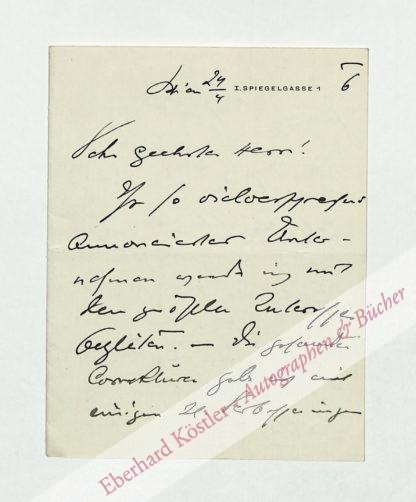 Wien 24/4 I. SPIEGELGASSE 1 6
Sehr geehrter Herr!
Ihr so vielversprechend
annonciertes Unter-
nehmen werde ich mit
dem größten Interesse
begleiten. – Die gesandten
Correkturen gab ich mit
einigen
Eberhard Köstler - Autographen & Bücher